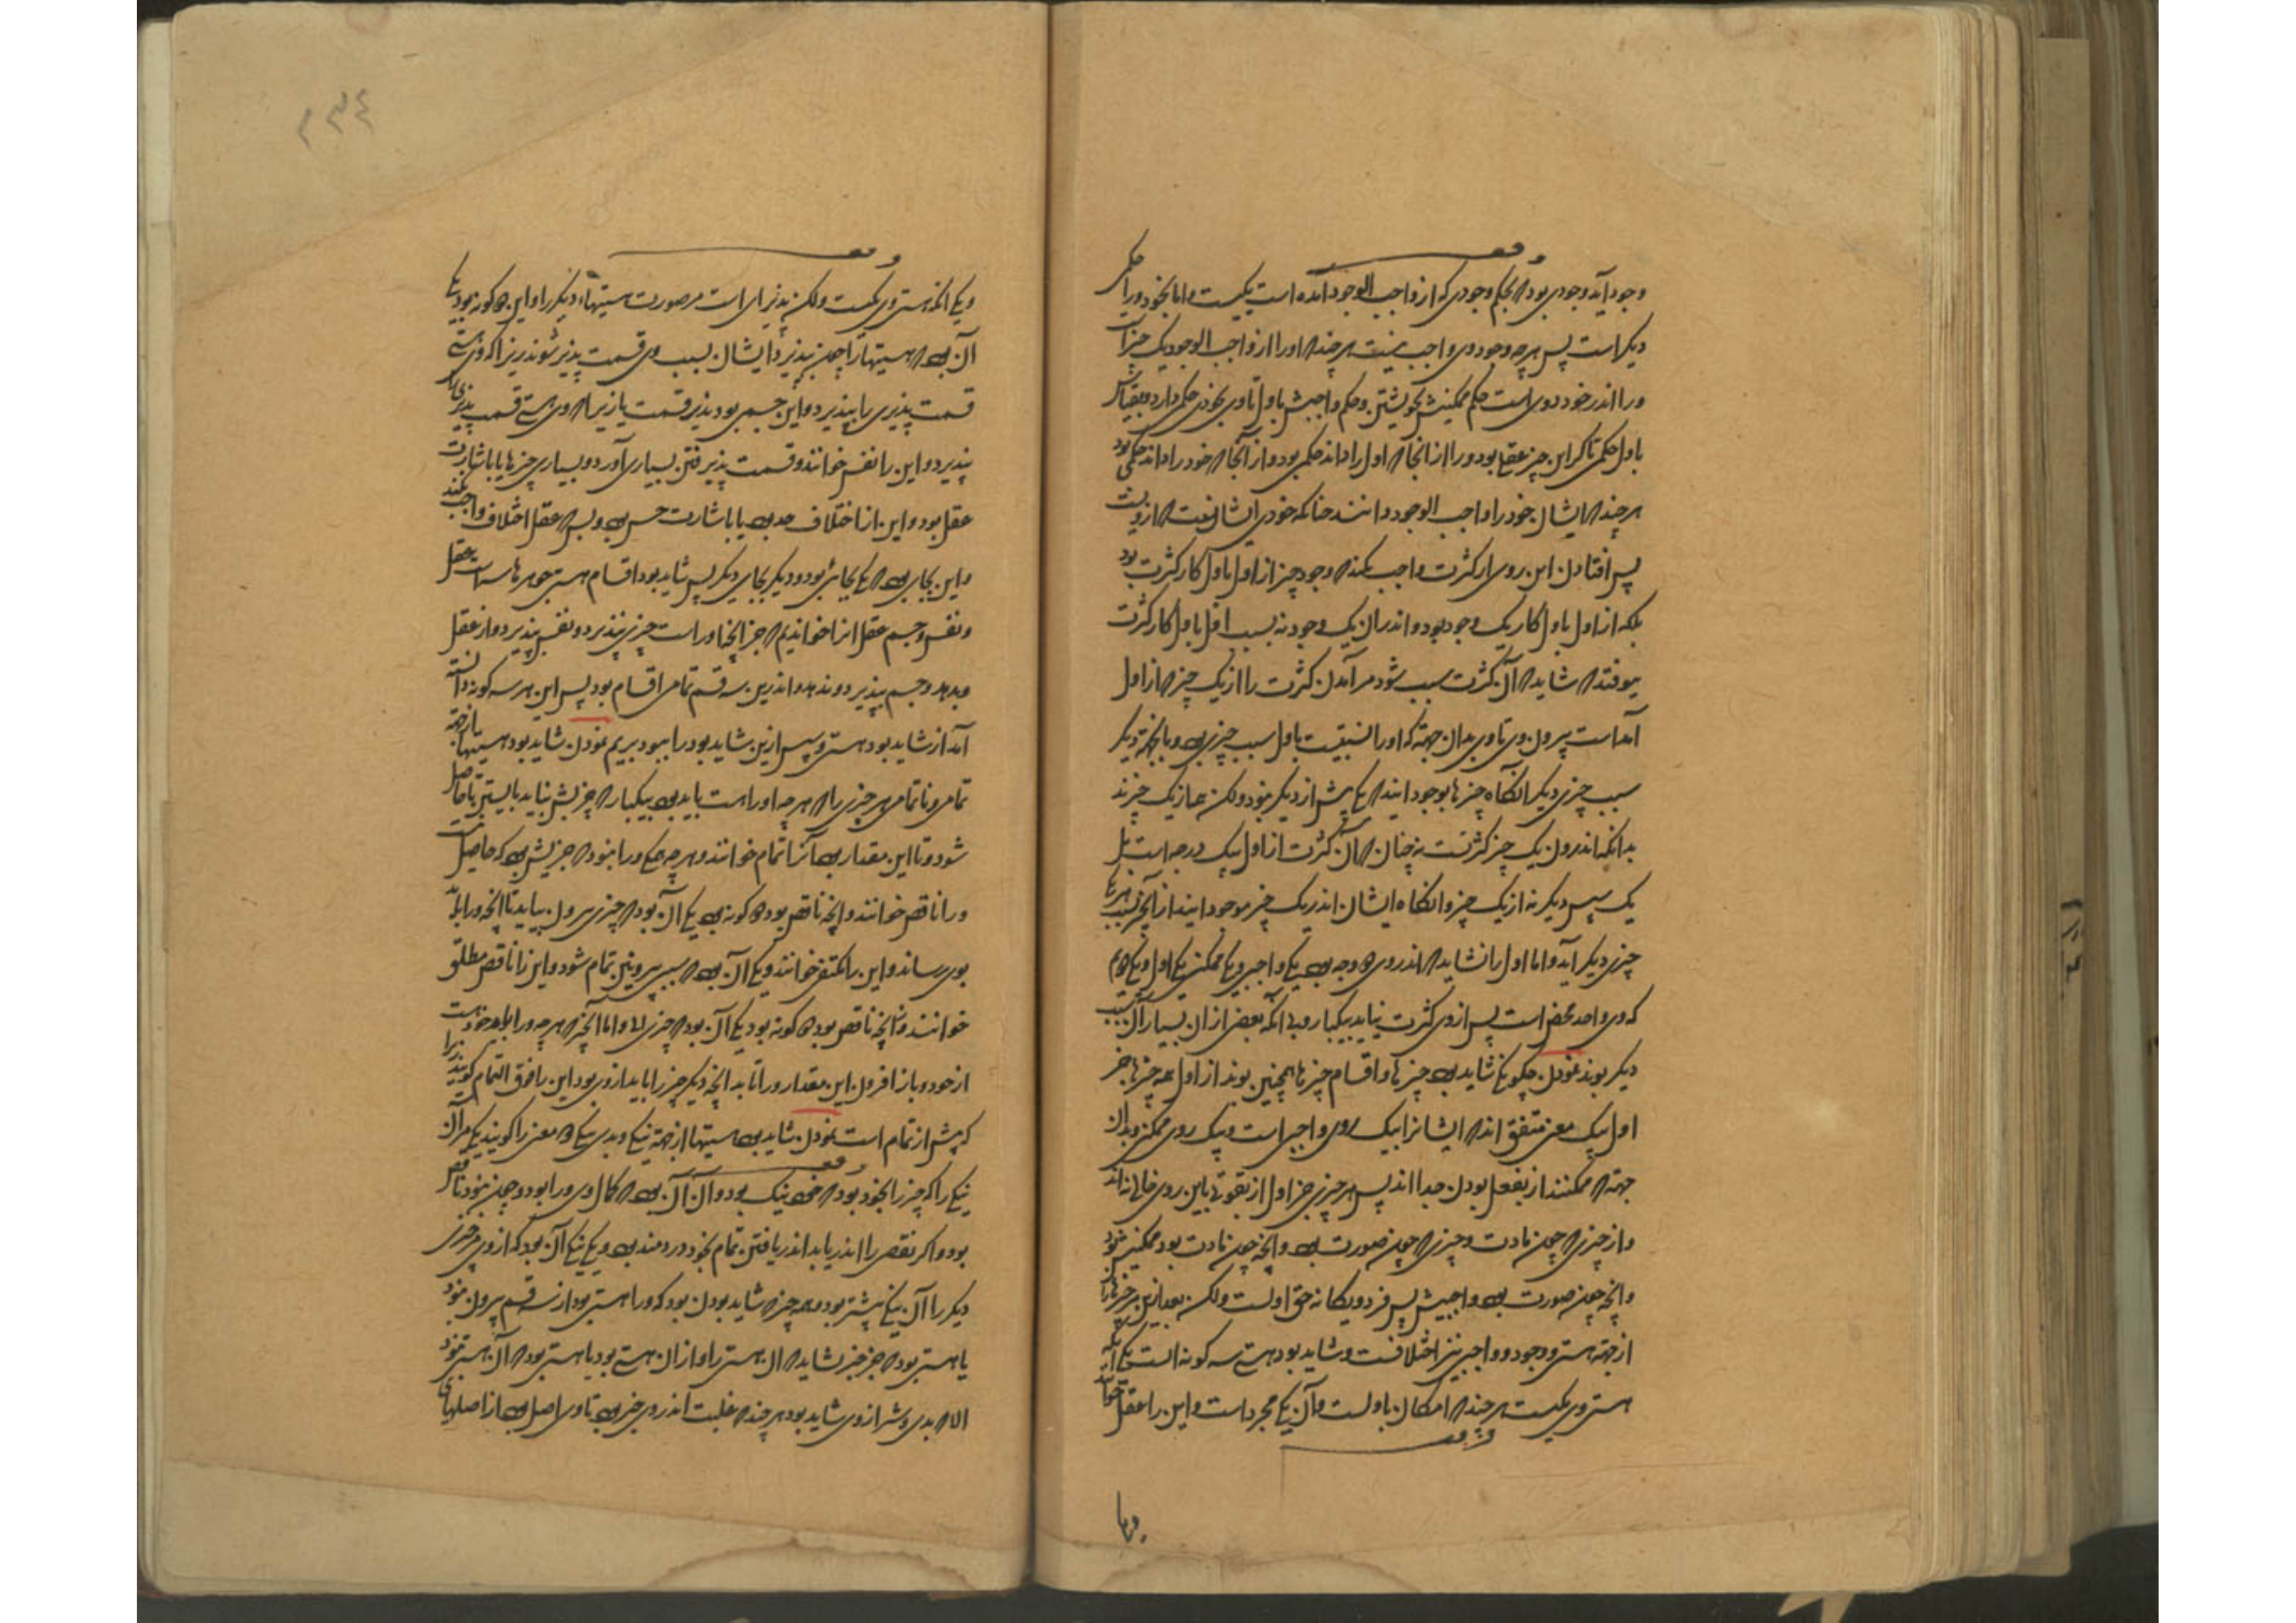 وجود آید وجودی بود که بحکم وجودی که از واجب الوجود آمده است یکیست واما بخود ورا حکمی
دیگر است پس هرچه وجود وی واجب نیست هرچند که اورا از واجب الوجود یک چیز است
ورا اندر خود دوی است حکم ممکنیش بخویشتن وحکم واجبیش باول تا وی بخودی حکمی دارد وبقیاس
باول حکمی تا گر این چیز عقلی بود ورا از آنجا که اول را داند حکمی بود واز آنجا که خود را داند حکمی بود
هرچند که ایشان خود را واجب الوجود دانند چنانکه خودی ایشان نیست که ازویست
پس افتادن این روی از کثرت واجب نکند که وجود چیز از اول باول کار کثرت بود
بلکه از اول باول کار یک وجود بود واندر آن یک وجود نه بسبب اول باول کار کثرت
بیوفتد که شاید که آن کثرت سبب شود مر آمدن کثرت را از یک چیز که از اول
آمداست بیرون وی تا وی بدان جهته که اورا نسبتست باول سبب چیزی بود وبآن جهته دیگر
سبب چیزی دیگر آنگاه چیزها بوجود آیند که یکی پیش از دیگر نبود ولکن هم از یک چیزند
بدانکه اندرون یک چیز کثرتست نه چنان که آن کثرت از اول بیک درجه است بل
یک سپس دیگر نه از یک چیز وآنگاه ایشان اندر یک چیز موجود آیند از آن چیز بسبب هر یکی
چیزی دیگر آید واما اول را نشاید که اندر وی دو وجه بود یکی واجبی ویکی ممکنی یکی اول ویکی دوم
که وی واحد محض است پس از وی کثرت نیاید بیکبار وبی آنکه بعضی از آن بسیار آن سبب
دیگر بوند نمودن چگونگی شاید بود چیزها واقسام چیزها همچنین بوند از اول همه چیزها جز
اول بیک معنی متفق اند که ایشانرا بیک روی واجبی است وبیک روی ممکنی وبدان
جهته که ممکنند از بفعل بودن جدا اند پس هر چیزی جز اول از بقوتی باین روی خالی نه اند
واز چیزی که چون مادت وچیزی که چون صورت بود وآنچه چون مادت بود ممکنیش بود
وآنچه چون صورت بود واجبیش پس فرد ویگانه حق اولست ولکن بعد ازین مر چیزها را
از جهته هستی ووجود وواجبی نیز اختلافست وشاید بود هستی سه گونه است یکی آنکه
هستی وی یکیست هرچند که امکان باولست وآن یکی مجرد است واین را عقل خوانند
ویکی
ویکی آنکه هستی وی یکیست ولکن پذیرای است مر صورت هستیهاء دیگر را واین دو گونه بود یکی
آن بود که هستیها را چون بپذیرد ایشان بسبب وی قسمت پذیر شوند زیرا که وی هستی
قسمت پذیری را بپذیرد واین جسمی بود پذیرد قسمت یا زیرا که وی هستی قسمت پذیری را
پذیرد واین را نفس خوانند وقسمت پذیرفتن بسیاری آورد وبسیاری چیزها یا باشارت
عقل بود واین از اختلاف حد بود یا باشارت حس بود وبس که عقل اختلاف واجب نکند
واین بجای بود که یکی بجائی بود ودیگر بجای دیگر پس شاید بود اقسام هستی جوهرها سه است عقل
ونفس وجسم عقل انرا خوانیم که جز آنچه اوراست چیزی نپذیرد ونفس پذیرد واز عقل
وبدهد وجسم بپذیرد وندهد واندرین سه قسم تمامی اقسام بود پس این هر سه گونه دانسته
آمد از شاید بود هستی وسپس ازین شاید بود را ببود بریم نمودن شاید بود هستیها از جهته
تمامی وناتمامی هر چیزی را که هرچه اوراست باید بود بیکبار که چیز بیش نباید بایستن تا حاصل
شود وتا این مقدار بود آنرا تمام خوانند وهرچه همگی ورا نبود که چیز بیش بود که حاصل نیست
ورا ناقص خوانند وآنچه ناقص بود دو گونه بود یکی آن بود که چیزی بیرون نباید تا آنچه ورا باید
بوی رساند واین را مکتفی خوانند ویکی آن بود که بسبب بیرونین تمام شود واین را ناقص مطلق
خوانند وآنچه ناقص بود دو گونه بود یکی آن بود که چیزی واما آنچیز که هرچه ورا باید خود هست
از خود وباز افزون این مقدار ورا تا بد آنچه دیگر چیز را باید ازوی بود این را فوق التمام گویند زیرا
که بیش از تمام است نمودن شاید بود هستیها از جهته نیکی وبدی نیکی دو معنی را گویند یکی مر آن
نیکی را که چیز را بخود بود که خود نیک بود وآن آن بود که کمال وی ورا بود وچون نبود ناقص
بود واگر نقص را اندر یابد اندر یافتن تمام بخود دردمند بود ویکی نیکی آن بود که ازوی مر چیزی
دیگر را آن نیکی بیشتر بود وهمه چیز که شاید بودن بود که ورا هستی بود از سه قسم بیرون نبود
یا هستی بود که جز خیر نشاید که آن هستی را واز آن هستی بود یا هستی بود که آن هستی نبود
الا که بدی وشر ازوی شاید بود هرچند که غلبت اندر وی خیر بود تا وی اصل بود از اصلهای